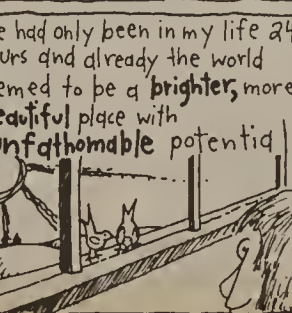 e had only been in my life 24
urs and already the world
emed to be a brighter, more
eautiful place with
unfathomable potentia